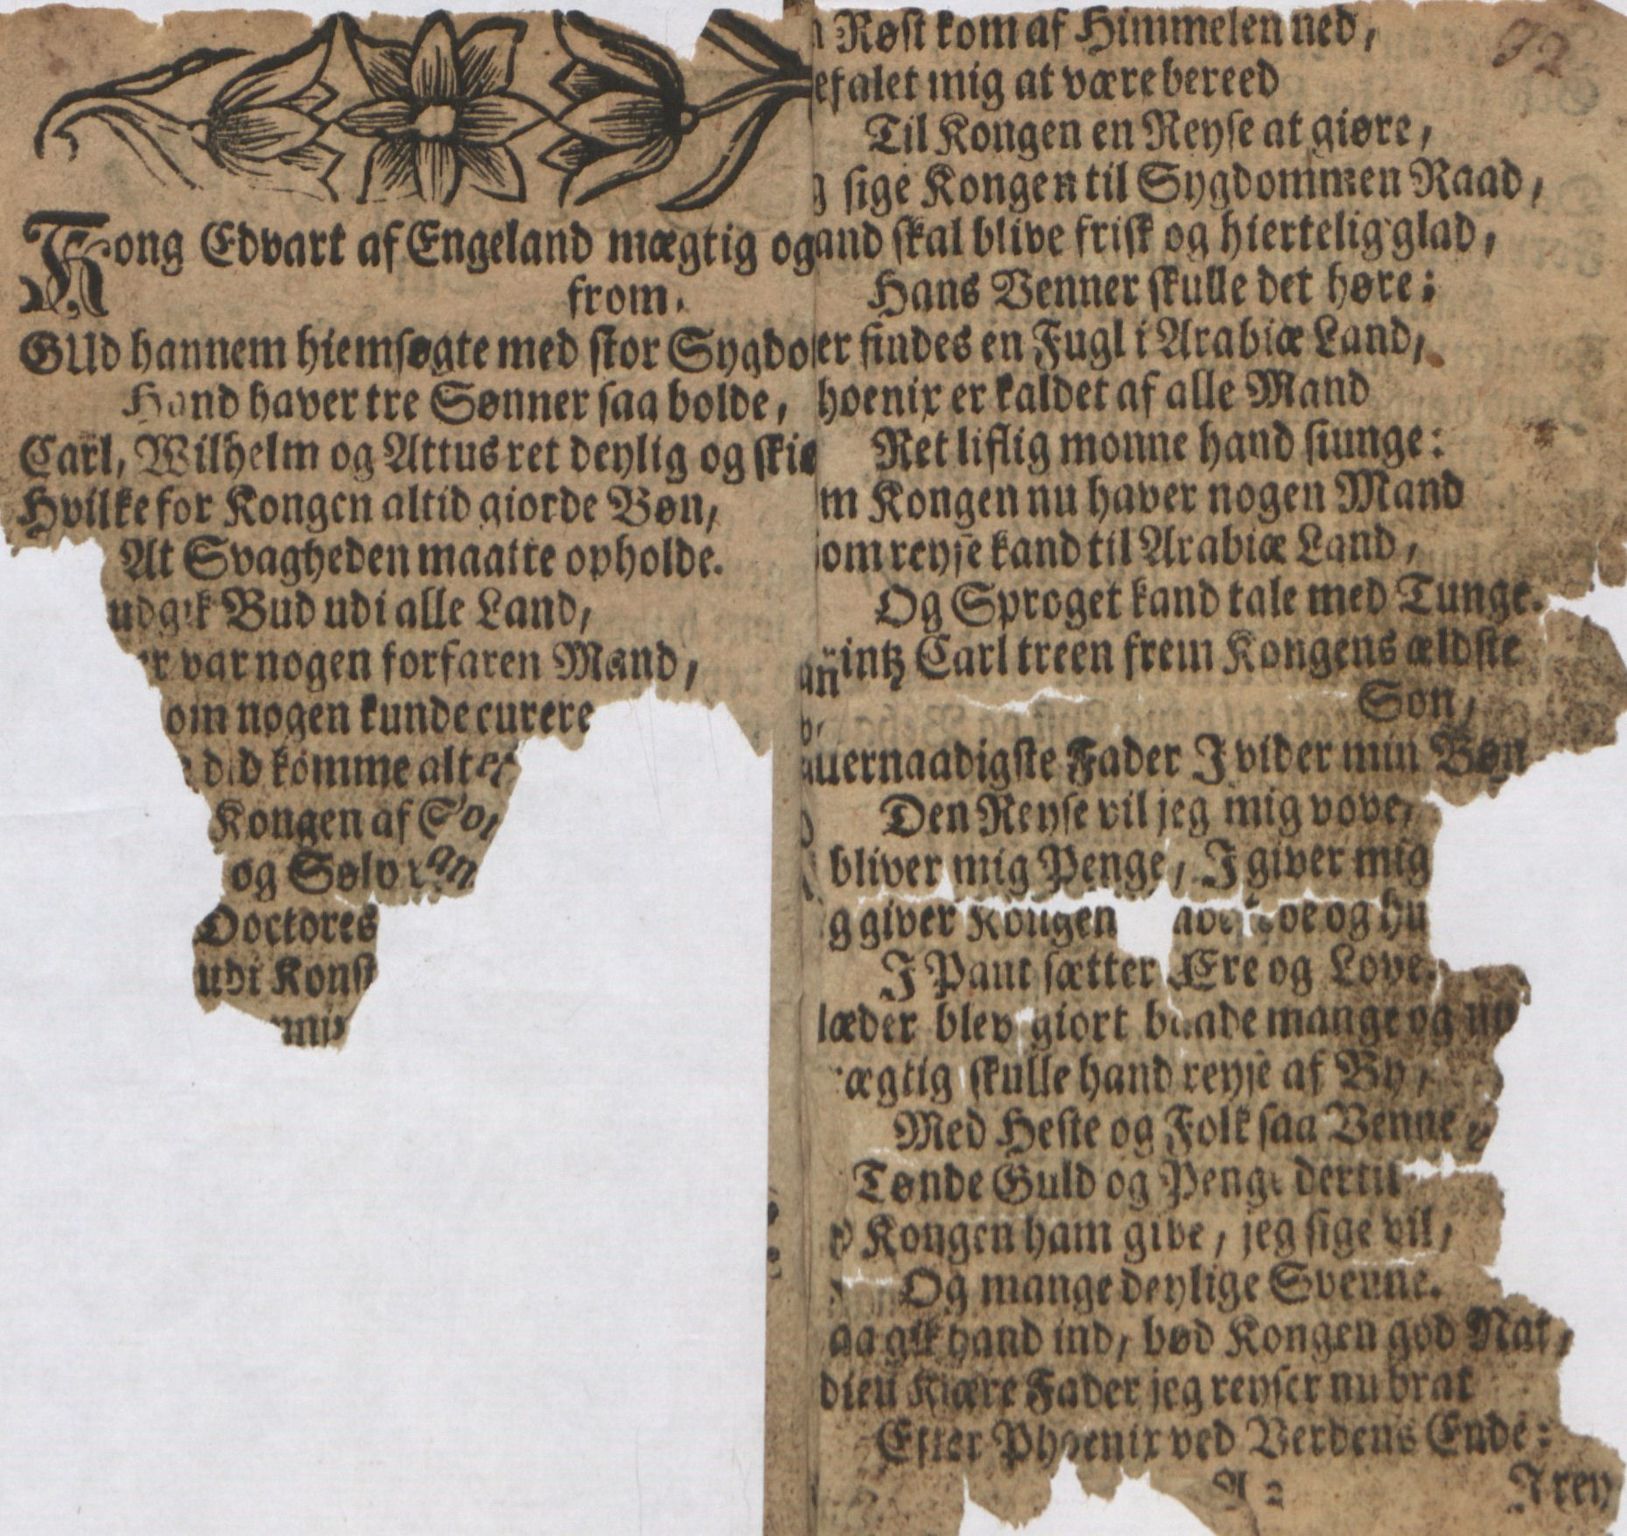 Kong Edvart af Engeland mægtig og
from.
GUd hannem hiemsøgte med stor Sygdo
Hand haver tre Sønner saa bolde,
Carl, Wilhelm og Attus ret deylig og skiø
Hvilke for Kongen altid giorde Bøn,
At Svagheden maatte opholde.
udgik Bud udi alle Land,
er var nogen forfaren Mand,
om nogen kunde curere
did komme alt
Kongen af
og Sølv
Doctores
udi Konst
n Røst kom af Himmelen ned,
efalet mig at være bereed
Til Kongen en Reyse at giøre,
g sige Kongen til Sygdommen Raad,
and skal blive frisk og hiertelig glad,
Hans Venner skulle det høre;
er findes en Fugl i Arabiæ Land,
hoenix er kaldet af alle Mand
Ret liflig monne hand siunge:
m Kongen nu haver nogen Mand
om reyse kand til Arabiæ Land,
Og Sproget kand tale med Tunge.
rintz Carl treen frem Kongens ældste
Søn,
uernaadigste Fader I vider min Bøn
Den Reyse vil jeg mig vove,
bliver mig Penge, I giver mig
g giver Kongen og hu
I Pant sætter Ære og Love.
læder blev giort baade mange og ny
ægtig skulle hand reyse af By,
Med Heste og Folk saa Venne,
Tønde Guld og Penge dertil
Kongen ham give, jeg sige vil,
Og mange deylige Svenne.
aa gik hand ind, bød Kongen god Nat,
dieu Kiære Fader jeg reyser nu brat
Efter Phoenix ved Verdens Ende:
A 2 A rey